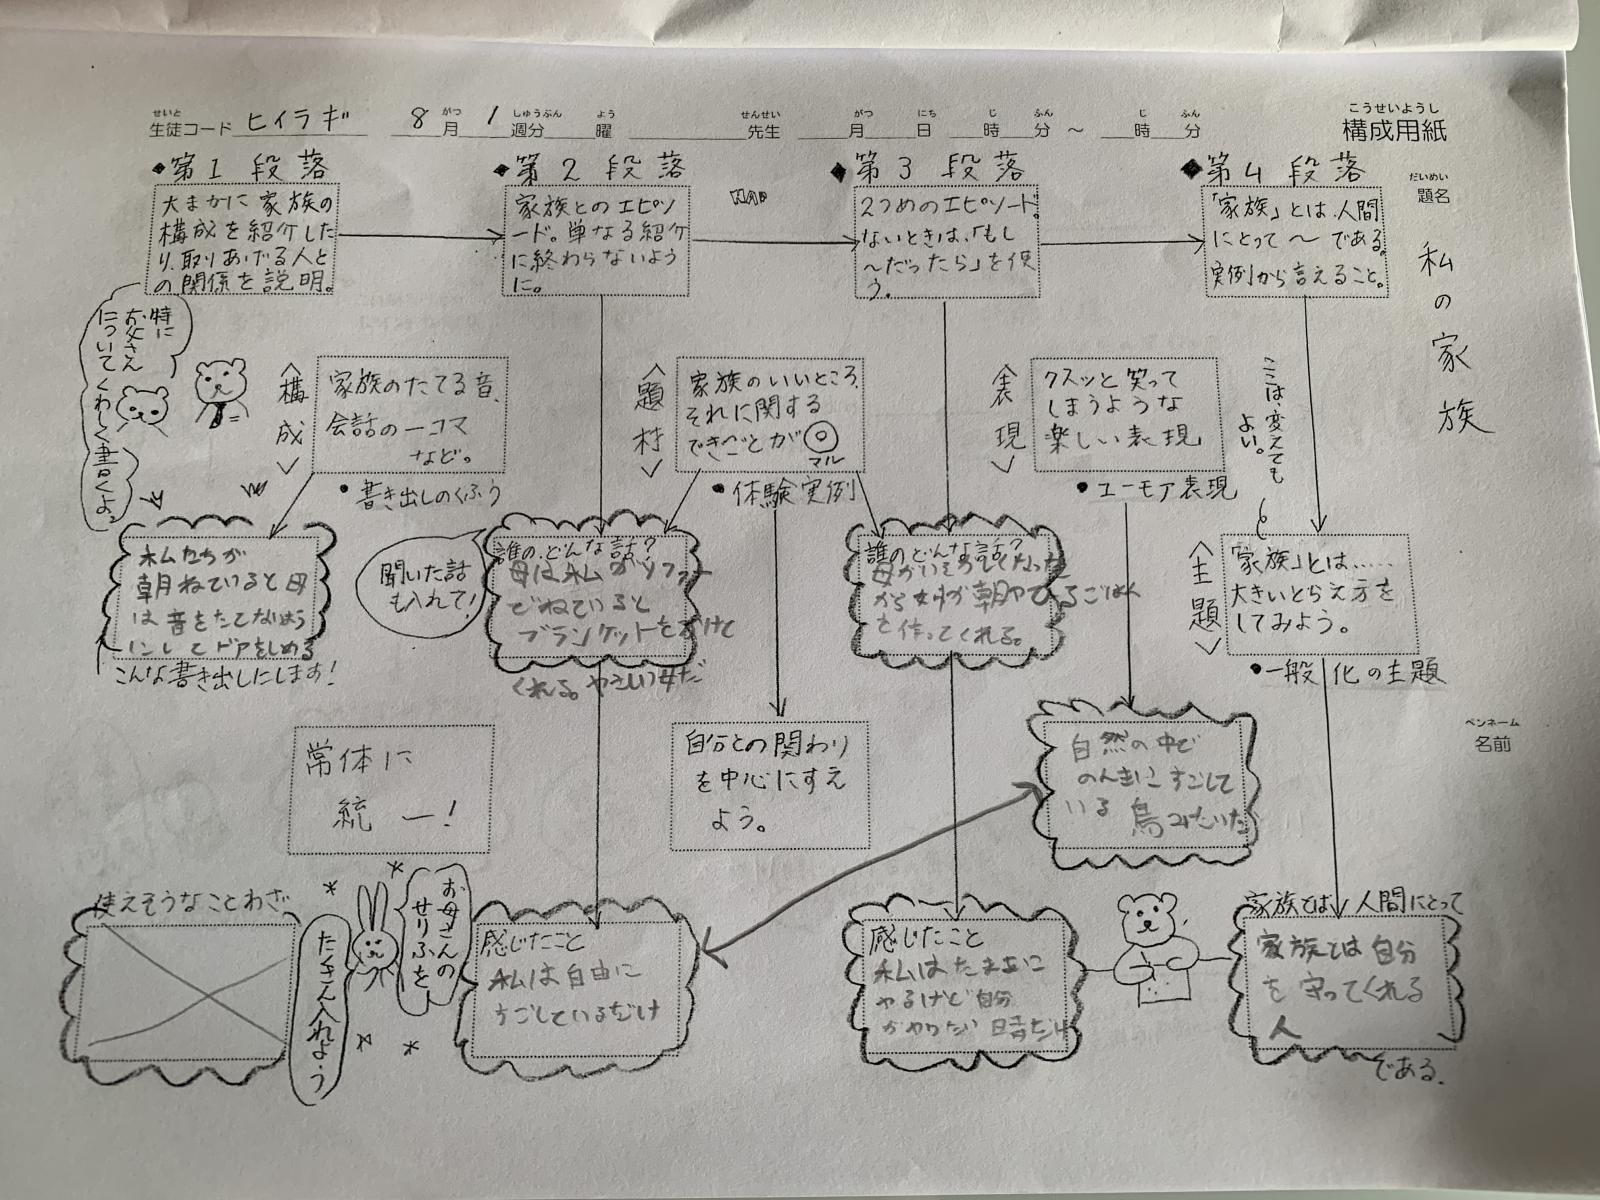 せいと がつ しゅうぶん よう せんせい がつ にち じ ふん じ ふん
生徒コード ヒイラギ 8月 1週分 曜 先生 月 日 時 分 〜 時 分
こうせいようし
構成用紙
だいめい
題名
私の家族
ペンネーム
名前
◆第1段落
大まかに家族の
構成を紹介した
り、取りあげる人と
の関係を説明。
◆第2段落
家族とのエピソ
ード。単なる紹介
に終わらないよう
に。
◆第3段落
2つめのエピソード。
ないときは、「もし
〜だったら」を使
う。
◆第4段落
「家族」とは、人間
にとって〜である。
実例から言えること。
特に
お父さん
について
くわしく書くよ。
<構成>
家族のたてる音、
会話の一コマ
など。
•書き出しのくふう
<題材>
家族のいいところ、
それに関する
できごとが◎
マル
•体験実例
<表現>
クスッと笑って
しまうような
楽しい表現
•ユーモア表現
ここは、変えても
よい。
私たちが
朝ねていると母
は音をたてないよう
にしてドアをしめる
こんな書き出しにします!
聞いた話
も入れて!
誰の、どんな話?
母は私がソファー
でねていると
ブランケットをかけて
くれる。
誰の、どんな話?
から妹が朝やひるごはん
を作ってくれる。
<主題>
「家族」とは……
大きいとらえ方を
してみよう。
•一般化の主題
常体に
統一!
自分との関わり
を中心にすえ
よう。
自然の中で
のんきにすごして
いる鳥みたいだ
使えそうなことわざ
お母さんの
せりふを
たくさん入れよう
感じたこと
私は自由に
すごしているだけ
感じたこと
私はたまに
やるけど自分
がやりたい時だけ
家族とは、人間にとって
家族とは自分
を守ってくれる
人
である。